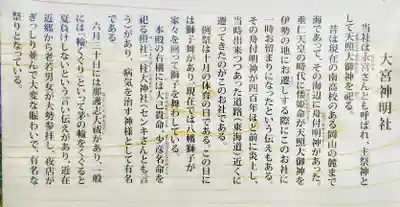 大宮神明社
当社はお宮さんとも呼ばれ、主祭神と
して天照大御神を祀る。
昔は現在の南高校のある岡山の麓まで
海であって、その海辺に舟付明神があった。
垂仁天皇の時代に倭姫命が天照大御神を
伊勢の地にお遷しする際にこのお社に
一時お留まりになったという伝えもある。
その舟付明神が四百年ほど前に炎上し、
当時出来つつあった道路(東海道)近くに
遷ってきたのがこのお社である。
例祭は十月の体育の日である。この日に
は獅子舞があり、現在では八幡獅子が
家々を回って獅子を舞わしている。
本殿の右隣には大己貴命、少彦名命を
祀る相社(二柱大神社)「センキさん」とも言
うがあり、病気を治す神様として有名
である。
六月三十日には那護志大祓があり、一般
には「輪くぐり」といって茅の輪をくぐると
夏負けしないという言い伝えがあり、近在
近郷から老若男女が大勢参拝し、夜店が
ぎっしり並んで大変な賑わいで、有名な
祭りとなっている。